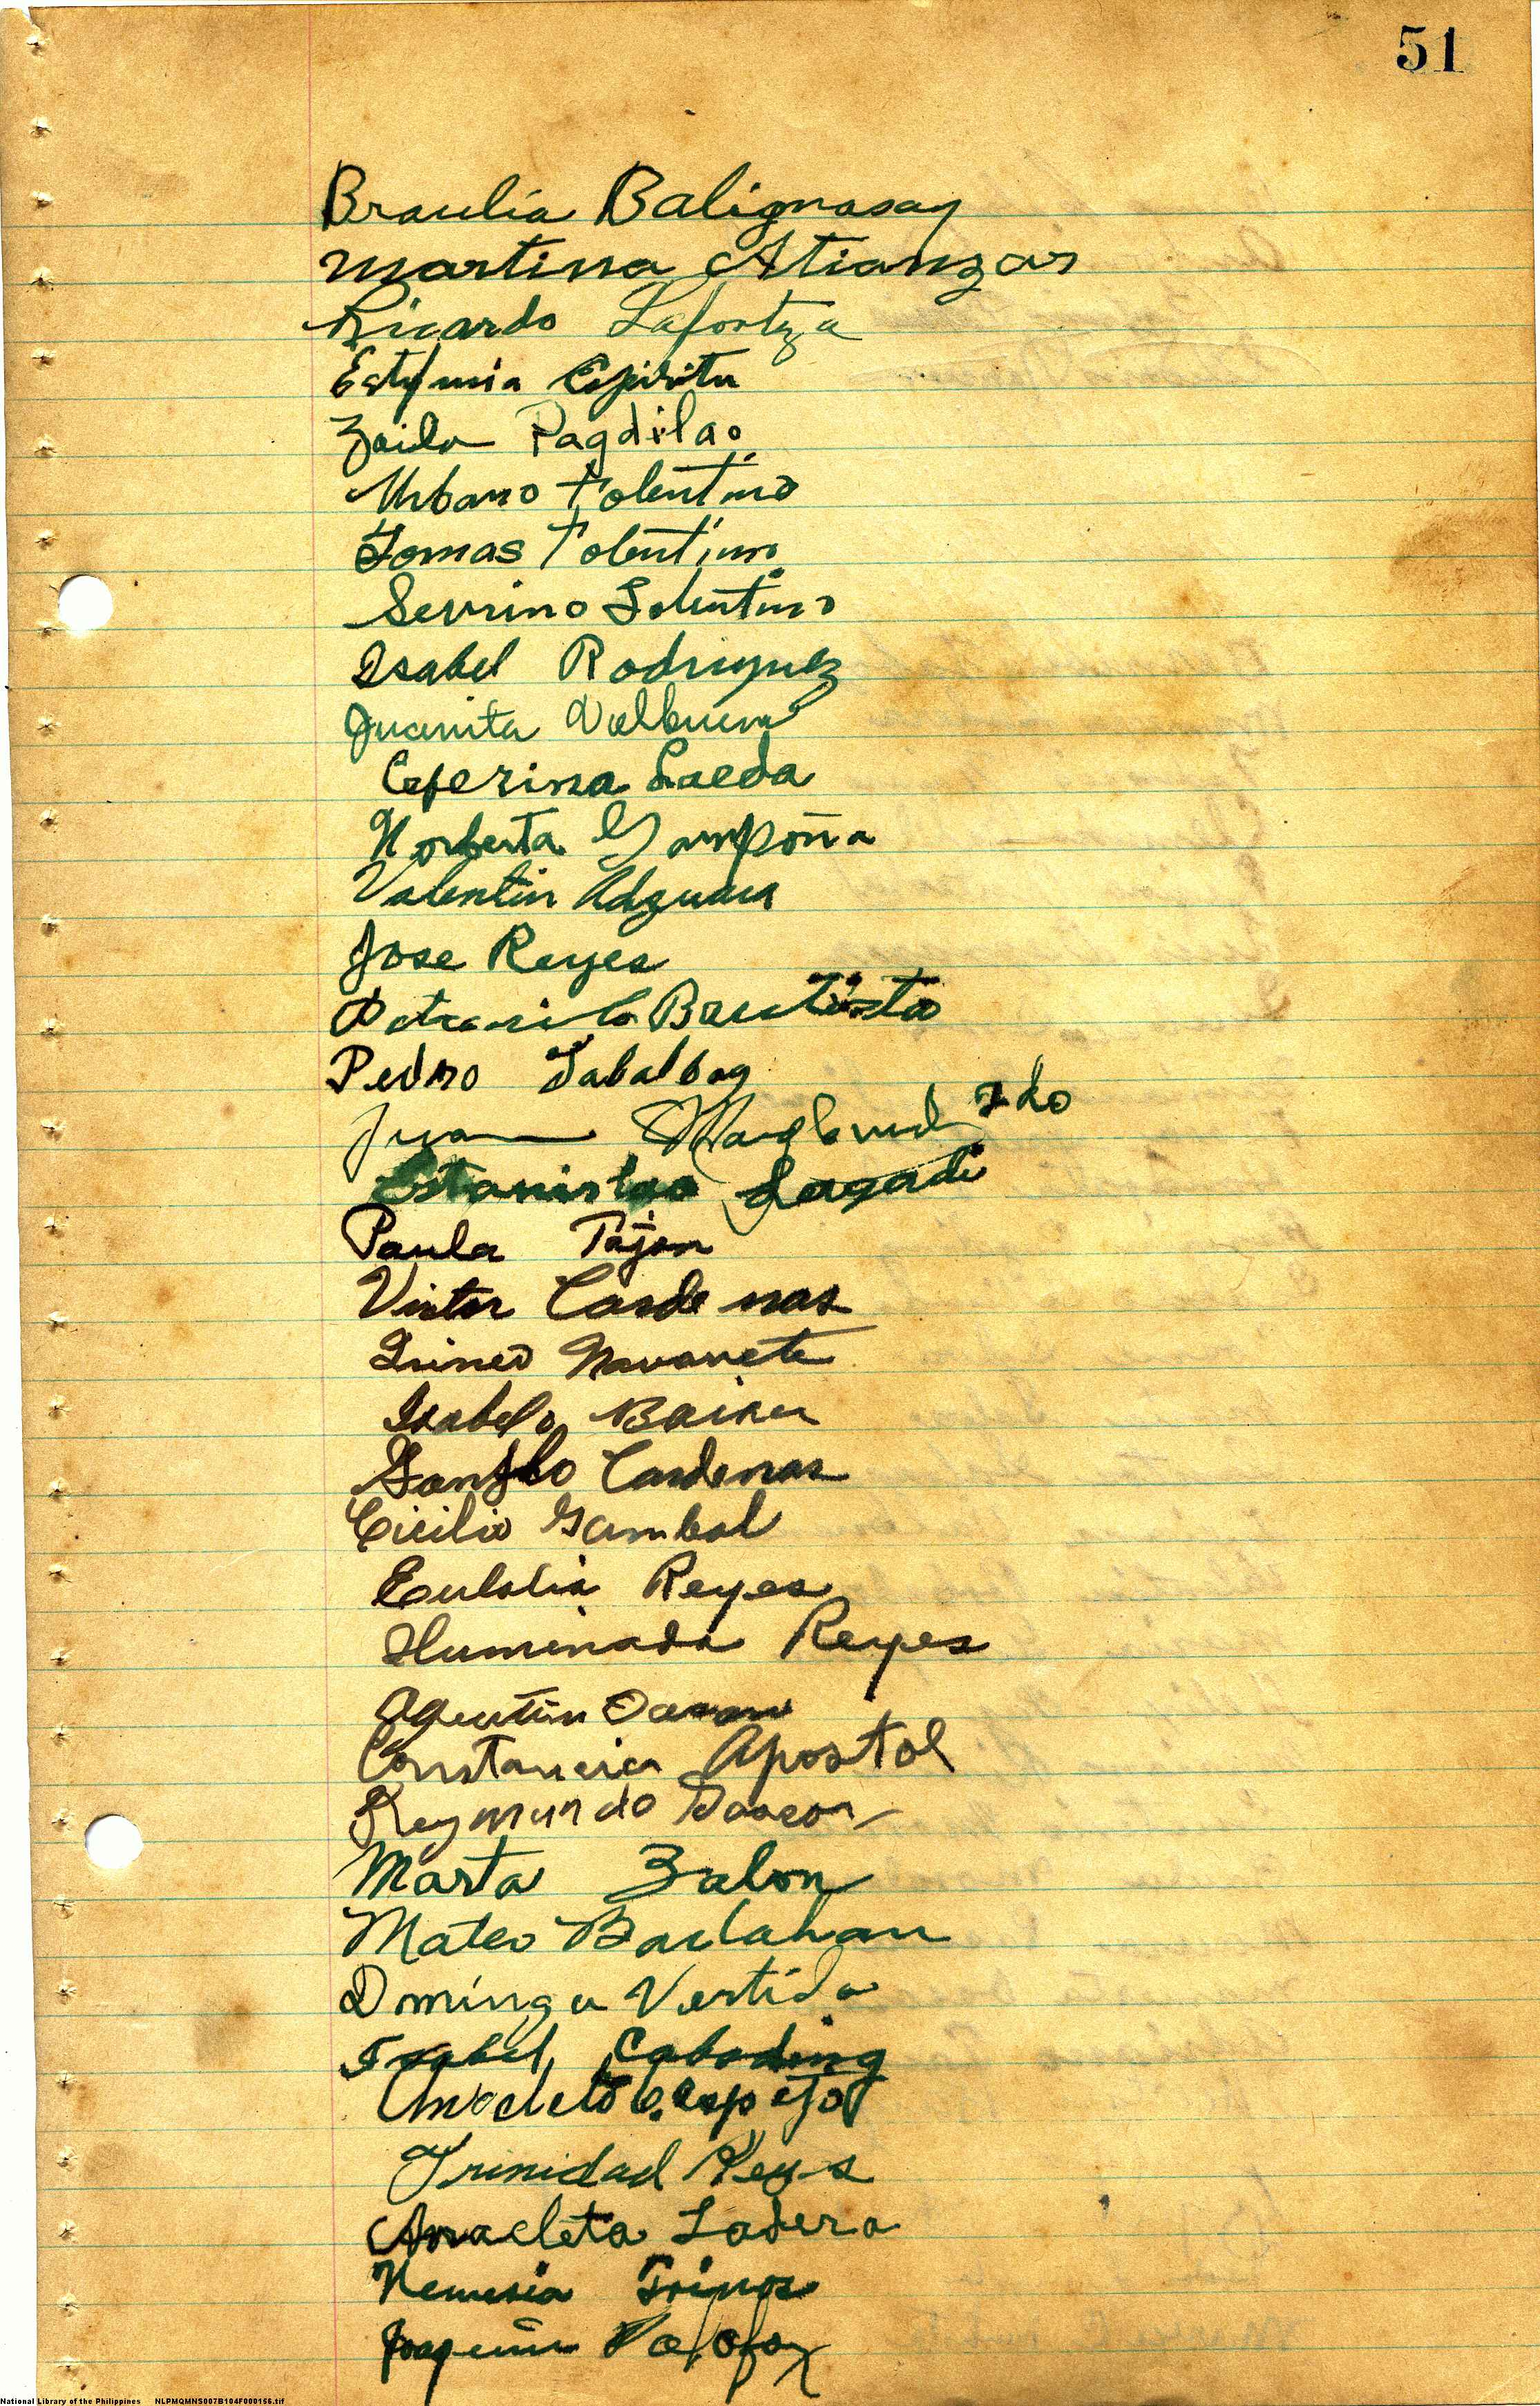 51
Braulia Balignasay
Martina Atianzar
Ricardo Lafortza
Espiritu
Zoilo Pagdilao
Urbano Tolentino
Tomas Tolentino
Sevrino Tolentino
Isabel Rodriguez
Juanita Valbuena
Ceferina Laeda
Norberta Gampoña
Valentin
Jose Reyes
Bautista
Pedro Tabalbag
Juan
Estanislao Lagadi
Paula Tajon
Victor Cardenas
Irineo Navarrete
Isabelo
Cardenas
Cicilio Gambal
Eulalia Reyes
Iluminada Reyes
Agustin
Constancia Apostol
Reymundo
Marta Zalon
Mateo Baclahan
Dominga Vertida
Isabel Cabading
Anacleto
Trinidad Reyes
Anacleta Ladera
Nemesia
Joaquin
National Library of the Philippines NLPMQMNS007B104F000156.tif